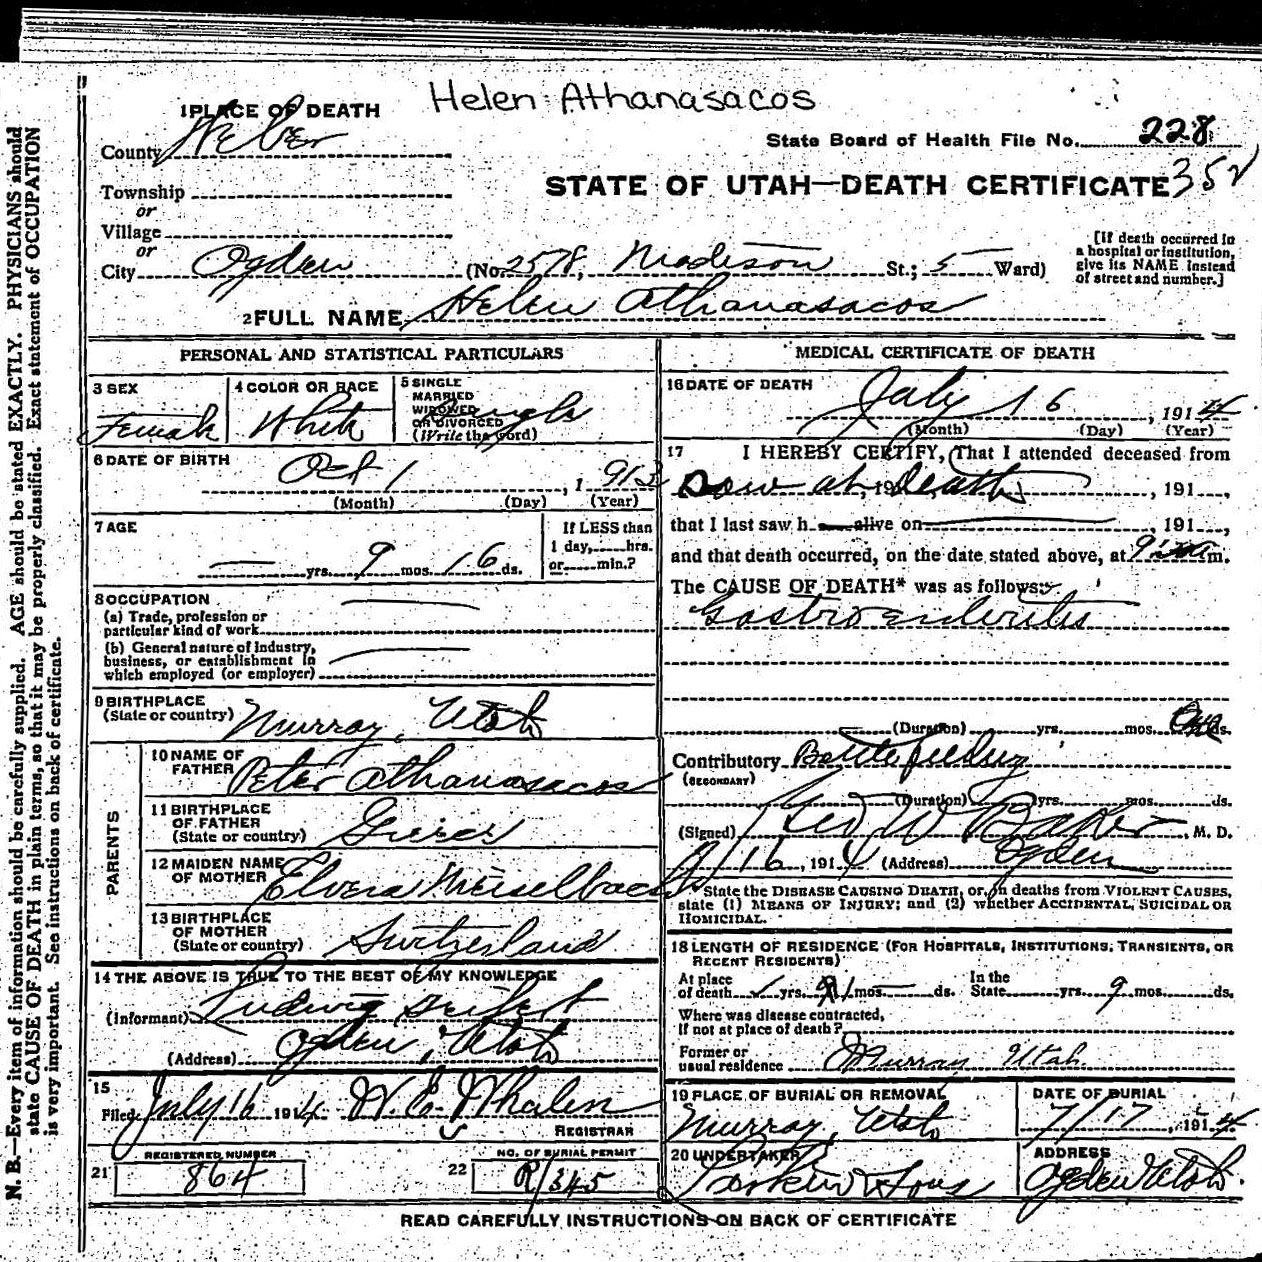 Helen Athanasacos
1 PLACE OF DEATH
County Weber
State Board of Health File No. 228
352
STATE OF UTAH—DEATH CERTIFICATE
Township
or
Village
or
City Ogden (No. 2578, Madison St.; 5 Ward)
[If death occurred in
a hospital or institution,
give its NAME instead
of street and number.]
2 FULL NAME Helen Athanasacos
PERSONAL AND STATISTICAL PARTICULARS
3 SEX
Female
4 COLOR OR RACE
White
5 SINGLE
MARRIED
WIDOWED
OR DIVORCED
(Write the word)
Single
6 DATE OF BIRTH
Oct 1, 1913
(Month) (Day) (Year)
7 AGE
yrs. 9 mos. 16 ds.
If LESS than
1 day, hrs.
or min.?
8 OCCUPATION
(a) Trade, profession or
particular kind of work
(b) General nature of industry,
business, or establishment in
which employed (or employer)
9 BIRTHPLACE
(State or country) Murray, Utah
PARENTS
10 NAME OF
FATHER Peter Athanasacos
11 BIRTHPLACE
OF FATHER
(State or country)
12 MAIDEN NAME
OF MOTHER Elvera Meiselbach
13 BIRTHPLACE
OF MOTHER
(State or country) Switzerland
14 THE ABOVE IS TRUE TO THE BEST OF MY KNOWLEDGE
(Informant) Ludwig Seifert
(Address) Ogden, Utah
15
Filed July 16 1914 W. E. Whalen
REGISTRAR
21 REGISTERED NUMBER
864
22 NO. OF BURIAL PERMIT
R/345
MEDICAL CERTIFICATE OF DEATH
16 DATE OF DEATH
July 16, 1914
(Month) (Day) (Year)
17 I HEREBY CERTIFY, That I attended deceased from
Saw at, 191 death, 191,
that I last saw h alive on, 191,
and that death occurred, on the date stated above, at 9 m.
The CAUSE OF DEATH* was as follows:
Gastro enteritis
(Duration) yrs. mos. ds.
Contributory Bottle feeding
(SECONDARY)
(Duration) yrs. mos. ds.
(Signed) Geo W Baker, M. D.
7/16, 1914 (Address) Ogden
State the DISEASE CAUSING DEATH, or, in deaths from VIOLENT CAUSES,
state (1) MEANS OF INJURY; and (2) whether ACCIDENTAL, SUICIDAL OR
HOMICIDAL.
18 LENGTH OF RESIDENCE (FOR HOSPITALS, INSTITUTIONS, TRANSIENTS, OR
RECENT RESIDENTS)
At place
of death yrs. mos. ds.
In the
State yrs. 9 mos. ds.
Where was disease contracted,
if not at place of death?
Former or
usual residence Murray Utah.
19 PLACE OF BURIAL OR REMOVAL
Murray, Utah
DATE OF BURIAL
7/17, 1914
20 UNDERTAKER
Larkin & Sons
ADDRESS
Ogden Utah.
READ CAREFULLY INSTRUCTIONS ON BACK OF CERTIFICATE
N. B.—Every item of information should be carefully supplied. AGE should be stated EXACTLY. PHYSICIANS should
state CAUSE OF DEATH in plain terms, so that it may be properly classified. Exact statement of OCCUPATION
is very important. See instructions on back of certificate.